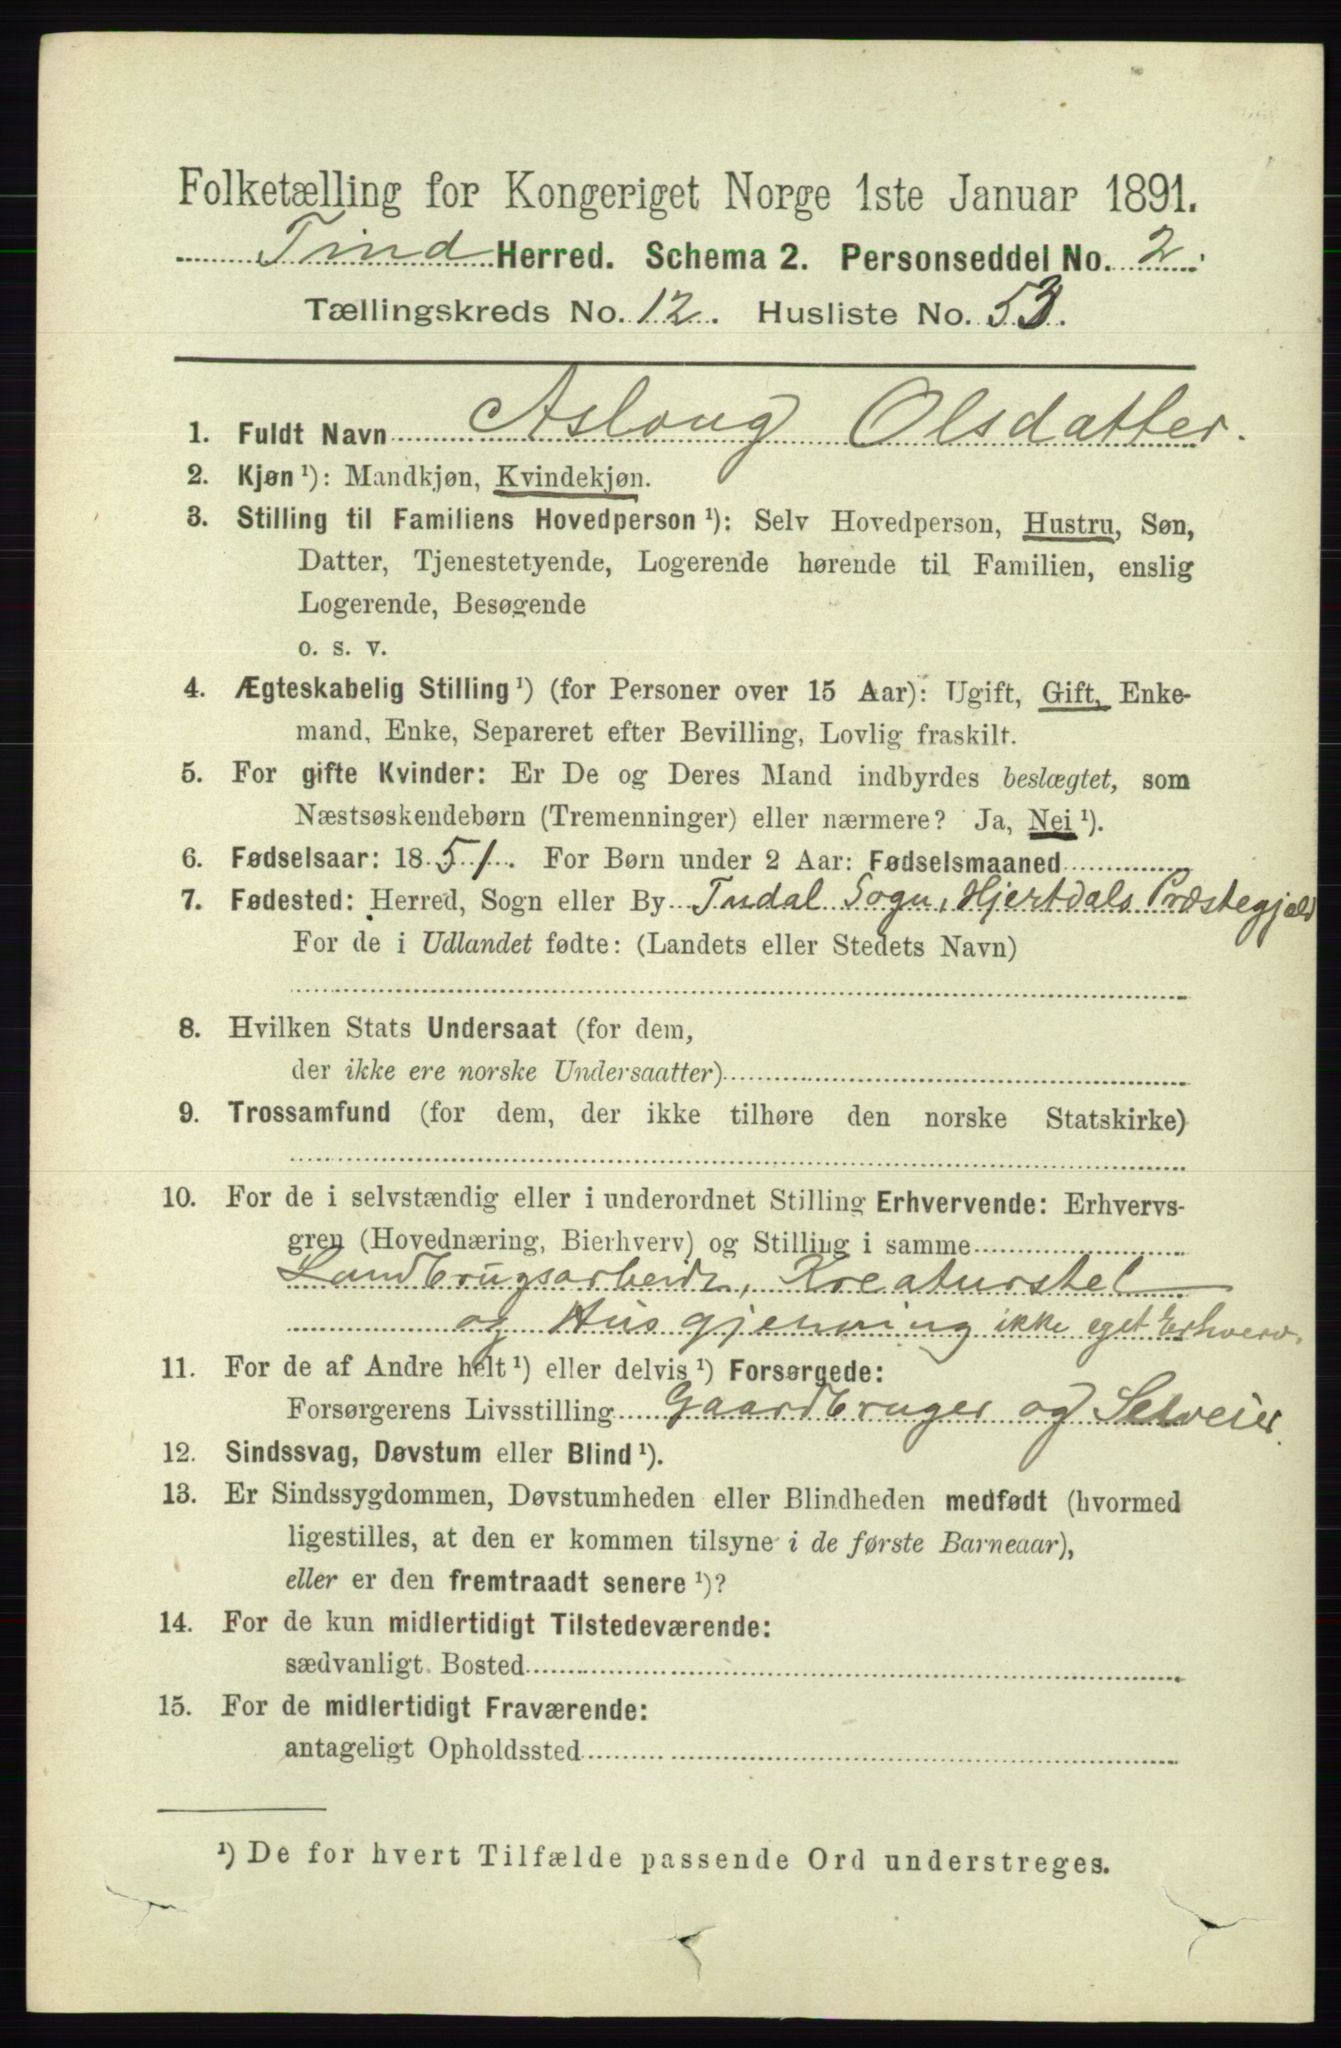 Folketælling for Kongeriget Norge 1ste Januar 1891.
Tind Herred. Schema 2. Personseddel No. 2.
Tællingskreds No. 12. Husliste No. 53.
1. Fuldt Navn Asloug Olsdatter.
2. Kjøn ¹): Mandkjøn, Kvindekjøn.
3. Stilling til Familiens Hovedperson ¹): Selv Hovedperson, Hustru, Søn,
Datter, Tjenestetyende, Logerende hørende til Familien, enslig
Logerende, Besøgende
o. s. v.
4. Ægteskabelig Stilling ¹) (for Personer over 15 Aar): Ugift, Gift, Enke-
mand, Enke, Separeret efter Bevilling, Lovlig fraskilt.
5. For gifte Kvinder: Er De og Deres Mand indbyrdes beslægtet, som
Næstsøskendebørn (Tremenninger) eller nærmere? Ja, Nei ¹).
6. Fødselsaar: 1851. For Børn under 2 Aar: Fødselsmaaned
7. Fødested: Herred, Sogn eller By Tudal Sogn, Hjertdals Præstegjæld
For de i Udlandet fødte: (Landets eller Stedets Navn)
8. Hvilken Stats Undersaat (for dem,
der ikke ere norske Undersaatter)
9. Trossamfund (for dem, der ikke tilhøre den norske Statskirke)
10. For de i selvstændig eller i underordnet Stilling Erhvervende: Erhvervs-
gren (Hovednæring, Bierhverv) og Stilling i samme
Landbrugsarbeide, Kreaturstel
og Husgjerning ikke eget Erhverv.
11. For de af Andre helt ¹) eller delvis ¹) Forsørgede:
Forsørgerens Livsstilling Gaardbruger og Selveier.
12. Sindssvag, Døvstum eller Blind ¹).
13. Er Sindssygdommen, Døvstumheden eller Blindheden medfødt (hvormed
ligestilles, at den er kommen tilsyne i de første Barneaar),
eller er den fremtraadt senere ¹)?
14. For de kun midlertidigt Tilstedeværende:
sædvanligt Bosted
15. For de midlertidigt Fraværende:
antageligt Opholdssted
¹) De for hvert Tilfælde passende Ord understreges.